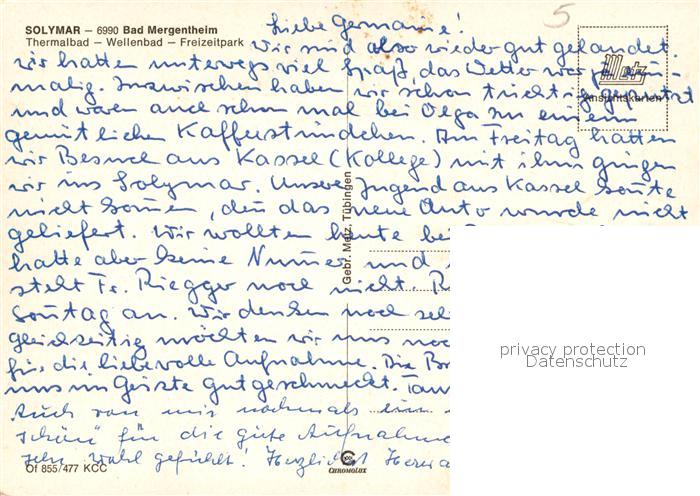 SOLYMAR – 6990 Bad Mergentheim
Thermalbad – Wellenbad – Freizeitpark
Liebe Germaine!
5
Wir sind also wieder gut gelandet.
wir hatten unterwegs viel Spaß, das Wetter war
malig. Inzwischen haben wir schon tüchtig geputzt
und waren auch schon mal bei Olga zu einem
gemütlichen Kaffeestündchen. Am Freitag hatten
wir Besuch aus Kassel (Kollege) mit ihm gingen
wir ins Solymar. Unsere Jugend aus Kassel konnte
nicht kommen, den das neue Auto wurde nicht
geliefert. Wir wollten heute be
hatte aber keine Numer und
stellt Fr. Riegger noch nicht.
Sontag an. Wir denken noch seh
gleichzeitig möchten wir uns noc
für die liebevolle Aufnahme. Die
uns im Geiste gut geschmeckt.
Auch von mir nochmals ein
schön" für die gute Aufnahme
sehr wohl gefühlt! Herzlichst
Metz
Ansichtskarten
Gebr. Metz, Tübingen
privacy protection
Datenschutz
Of 855/477 KCC
CHROMOLUX